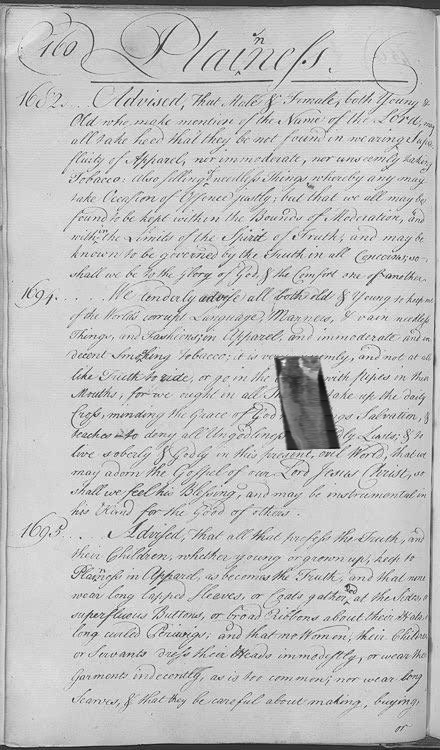 160 Plainness.
1682... Advised, That Male & Female, both Young &
Old who make mention of the Name of the Lord, may
all take heed that they be not found in wearing Supr
fluity of Apparel, nor immoderate, nor unseemly taking
Tobacco: also selling needless Things whereby any may
take Occasion of Offence justly; but that we all may be
found to be kept within the Bounds of Moderation, and
within the Limits of the Spirit of Truth; and may be
known to be governed by the Truth in all Concerns, so
shall we be to the Glory of God, & the Comfort one of another.
1694..... We tenderly advise all both old & Young to keep out
of the World's corrupt Language, Manners, & vain needless
Things, and Fashions, in Apparel, and immoderate and in
decent Smoking Tobacco; it is very and not at all
like Truth to ride, or go in the with pipes in their
Mouths; for we ought in all take up the daily
Cross, minding the Grace of God Salvation, &
teaches to deny all Ungodliness Lusts; & to
live soberly & Godly in this present evil World, that we
may adorn the Gospel of our Lord Jesus Christ, so
shall we feel his Blessing, and may be instrumental in
his Hand for the Good of others.
1695... Advised, That all that profess the Truth, and
their Children, whether young or grown up, keep to
Plainness in Apparel, as becomes the Truth, and that none
wear long lapped Sleeves, or Coats gathered at the Sides, or
superfluous Buttons, or broad Ribbons about their Hats, or
long curled Periwigs; and that no Women, their Children
or Servants dress their Heads immodestly, or wear their
Garments indecently, as is too common; nor wear long
Scarves, & that they be careful about making, buying,
or